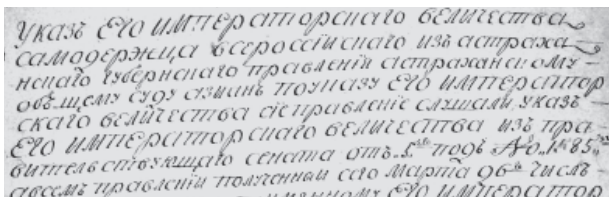 Указъ ЕГО ИМПЕРАТОРСКАГО ВЕЛИЧЕСТВА
самодержца всероссійскаго изъ астраха
нскаго губернскаго правленія астраханскому
общему суду азіанъ поуказу ЕГО ИМПЕРАТОР
скаго величества сіе правленіе слушали указъ
ЕГО ИМПЕРАТОРСКАГО ВЕЛИЧЕСТВА изъ пра
вительствующаго сената отъ подъ №
правленіи полученный сего марта 96 числъ
ЕГО ИМПЕРАТОР